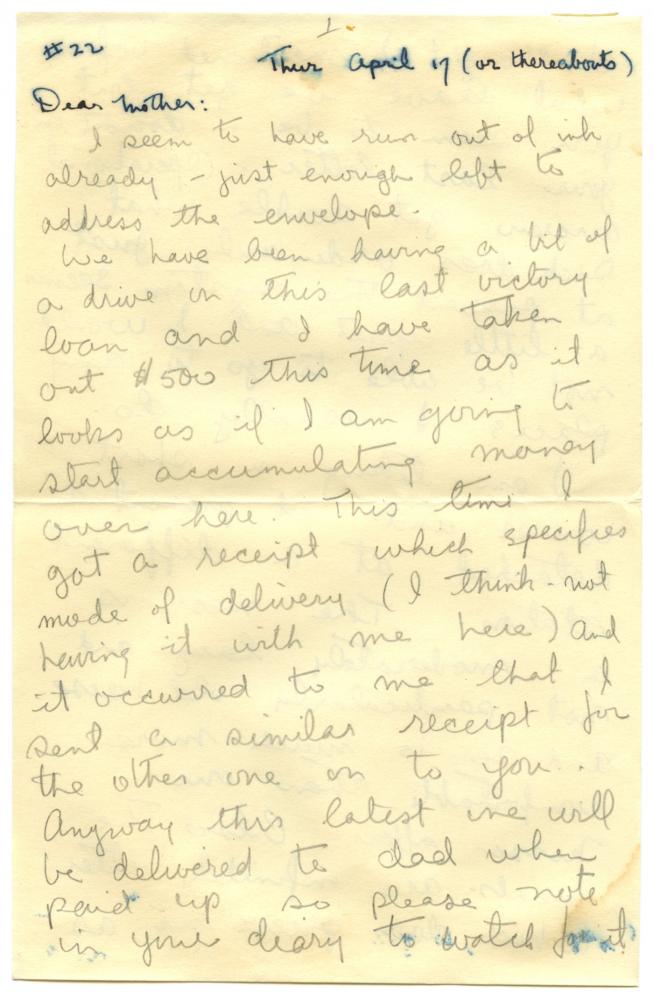 1
#22
Thur April 17 (or thereabouts)
Dear Mother:
I seem to have run out of ink
already - just enough left to
address the envelope.
We have been having a bit of
a drive on this last victory
loan and I have taken
out $500 this time as it
looks as if I am going to
start accumulating money
over here. This time I
got a receipt which specifies
mode of delivery (I think - not
having it with me here) and
it occurred to me that I
sent a similar receipt for
the other one on to you.
Anyway this latest one will
be delivered to dad when
paid up so please note
in your diary to watch for it